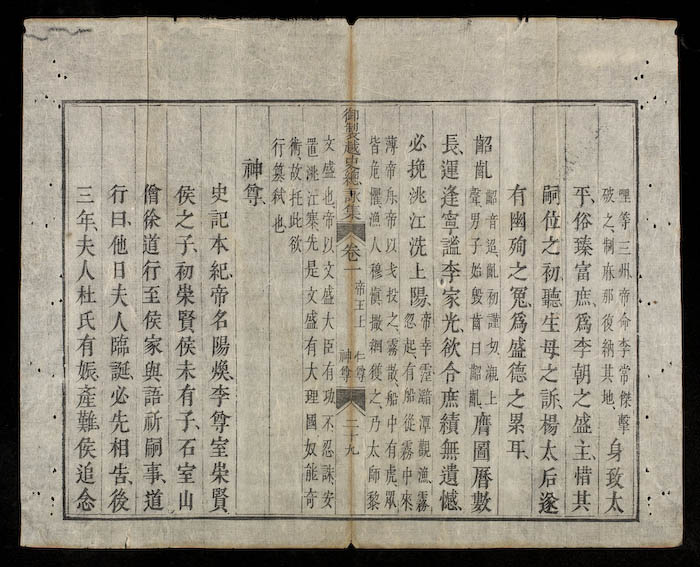 哩等三州帝命李常傑擊
破之制麻那復納其地
身致太
平、俗臻富庶、爲李朝之盛主、惜其
嗣位之初、聽生母之訴、楊太后遂
有幽殉之冤、爲盛德之累耳、
齠齔
齠音迢、齔初謹切、襯上
聲、男子始毀齒曰齠齔
膺圖曆數
長、運逢寧謐李家光、欲令庶績無遺憾、
必挽洮江洗上陽、
帝幸霪瀟潭觀漁、霧
忽起、有船從霧中來
薄帝舟、帝以戈投之、霧散、船中有虎、眾
皆危懼、漁人穆愼撒網獲之、乃太師黎
御製越史總詠集
卷一
帝王上
仁尊
神尊
二十九
文盛也、帝以文盛大臣有功、不忍誅、安
置洮江寨、先是文盛有大理國奴能奇
術、故托此欲
行篡弑也
神尊、
史記本紀、帝名陽煥、李尊室崇賢
侯之子、初崇賢侯未有子、石室山
僧徐道行至侯家、與語祈嗣事、道
行曰、他日夫人臨誕、必先相告、後
三年、夫人杜氏有娠、產難、侯追念